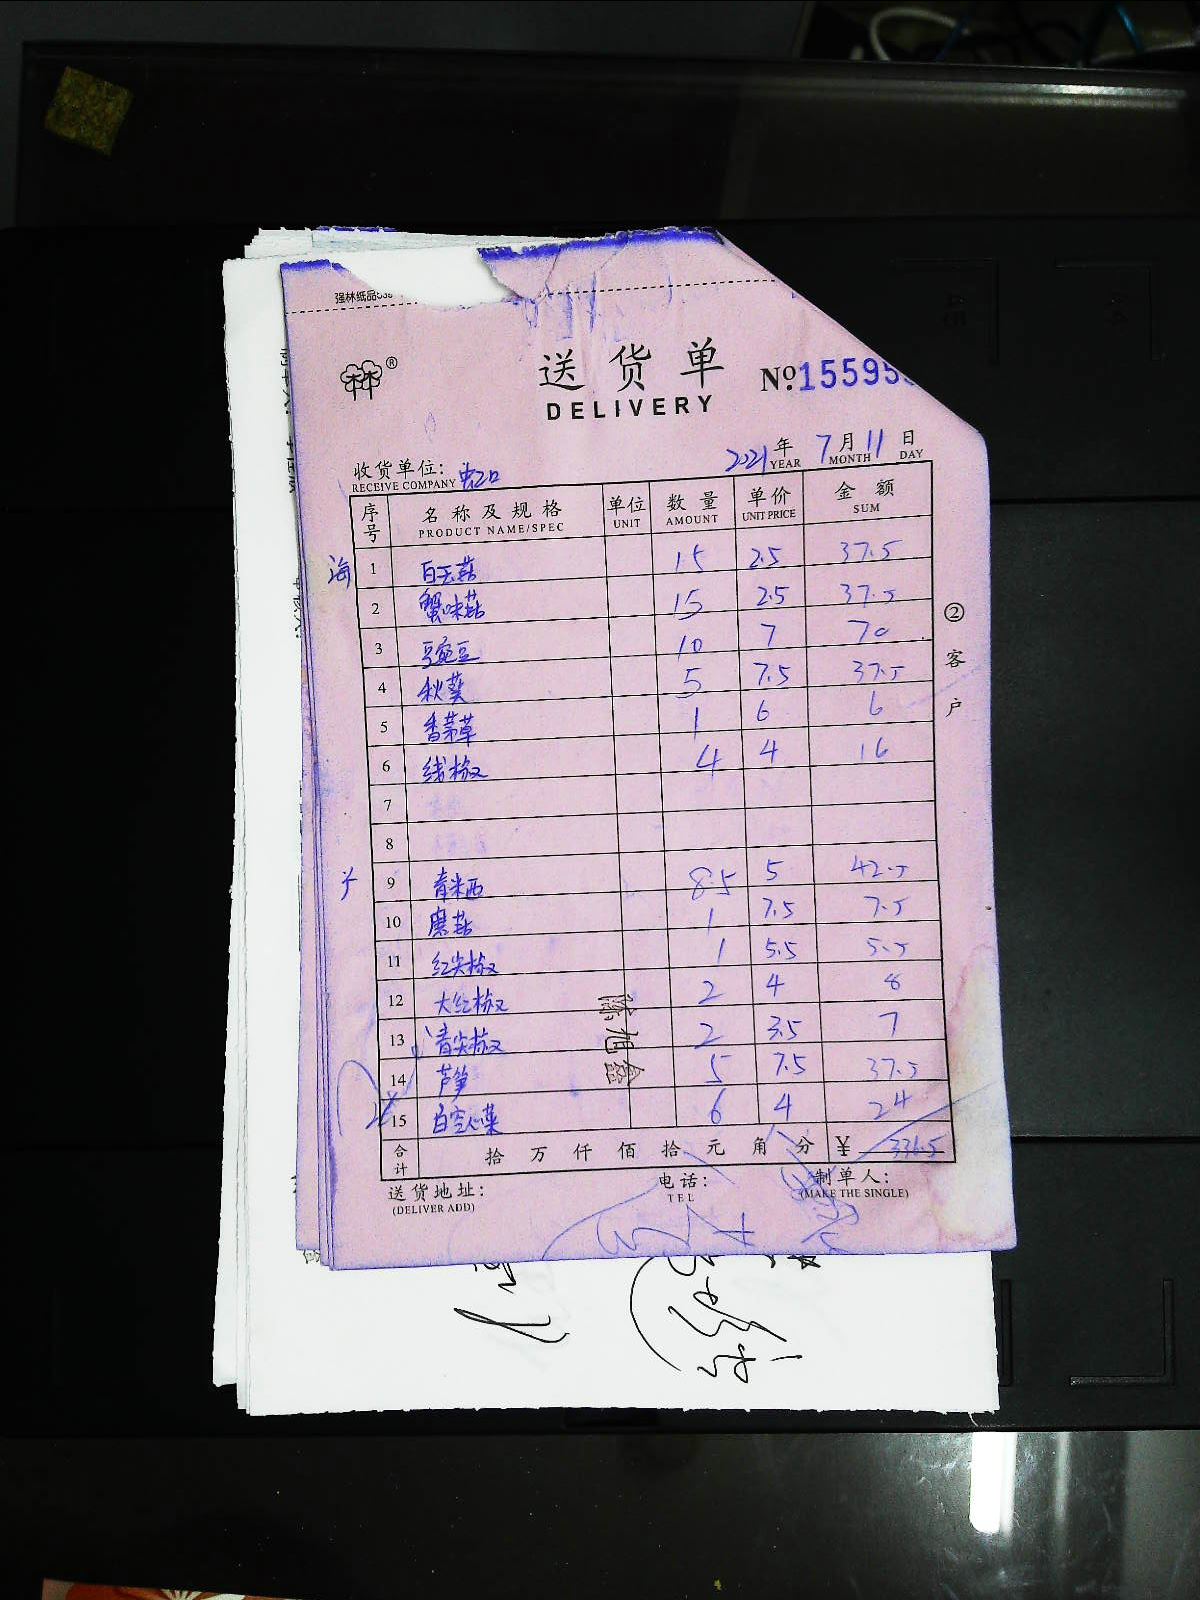 强林纸品
林®
送货单
DELIVERY
No.15595
2021年 7月 11日
YEAR MONTH DAY
收货单位: 虹口
RECEIVE COMPANY
序号 名称及规格 单位 数量 单价 金额
PRODUCT NAME/SPEC UNIT AMOUNT UNIT PRICE SUM
海 1 白玉菇 15 2.5 37.5
2 蟹味菇 15 2.5 37.5
3 豌豆 10 7 70
4 秋葵 5 7.5 37.5
5 香茅草 1 6 6
6 线椒 4 4 16
7
8
9 青米西 8.5 5 42.5
10 磨菇 1 7.5 7.5
11 红尖椒 1 5.5 5.5
12 大红椒 2 4 8
13 青尖椒 2 3.5 7
14 芦笋 5 7.5 37.5
15 白空心菜 6 4 24
合计 拾 万 仟 佰 拾 元 角 分 ¥ 336.5
送货地址: 电话: 制单人:
(DELIVER ADD) TEL (MAKE THE SINGLE)
②客户